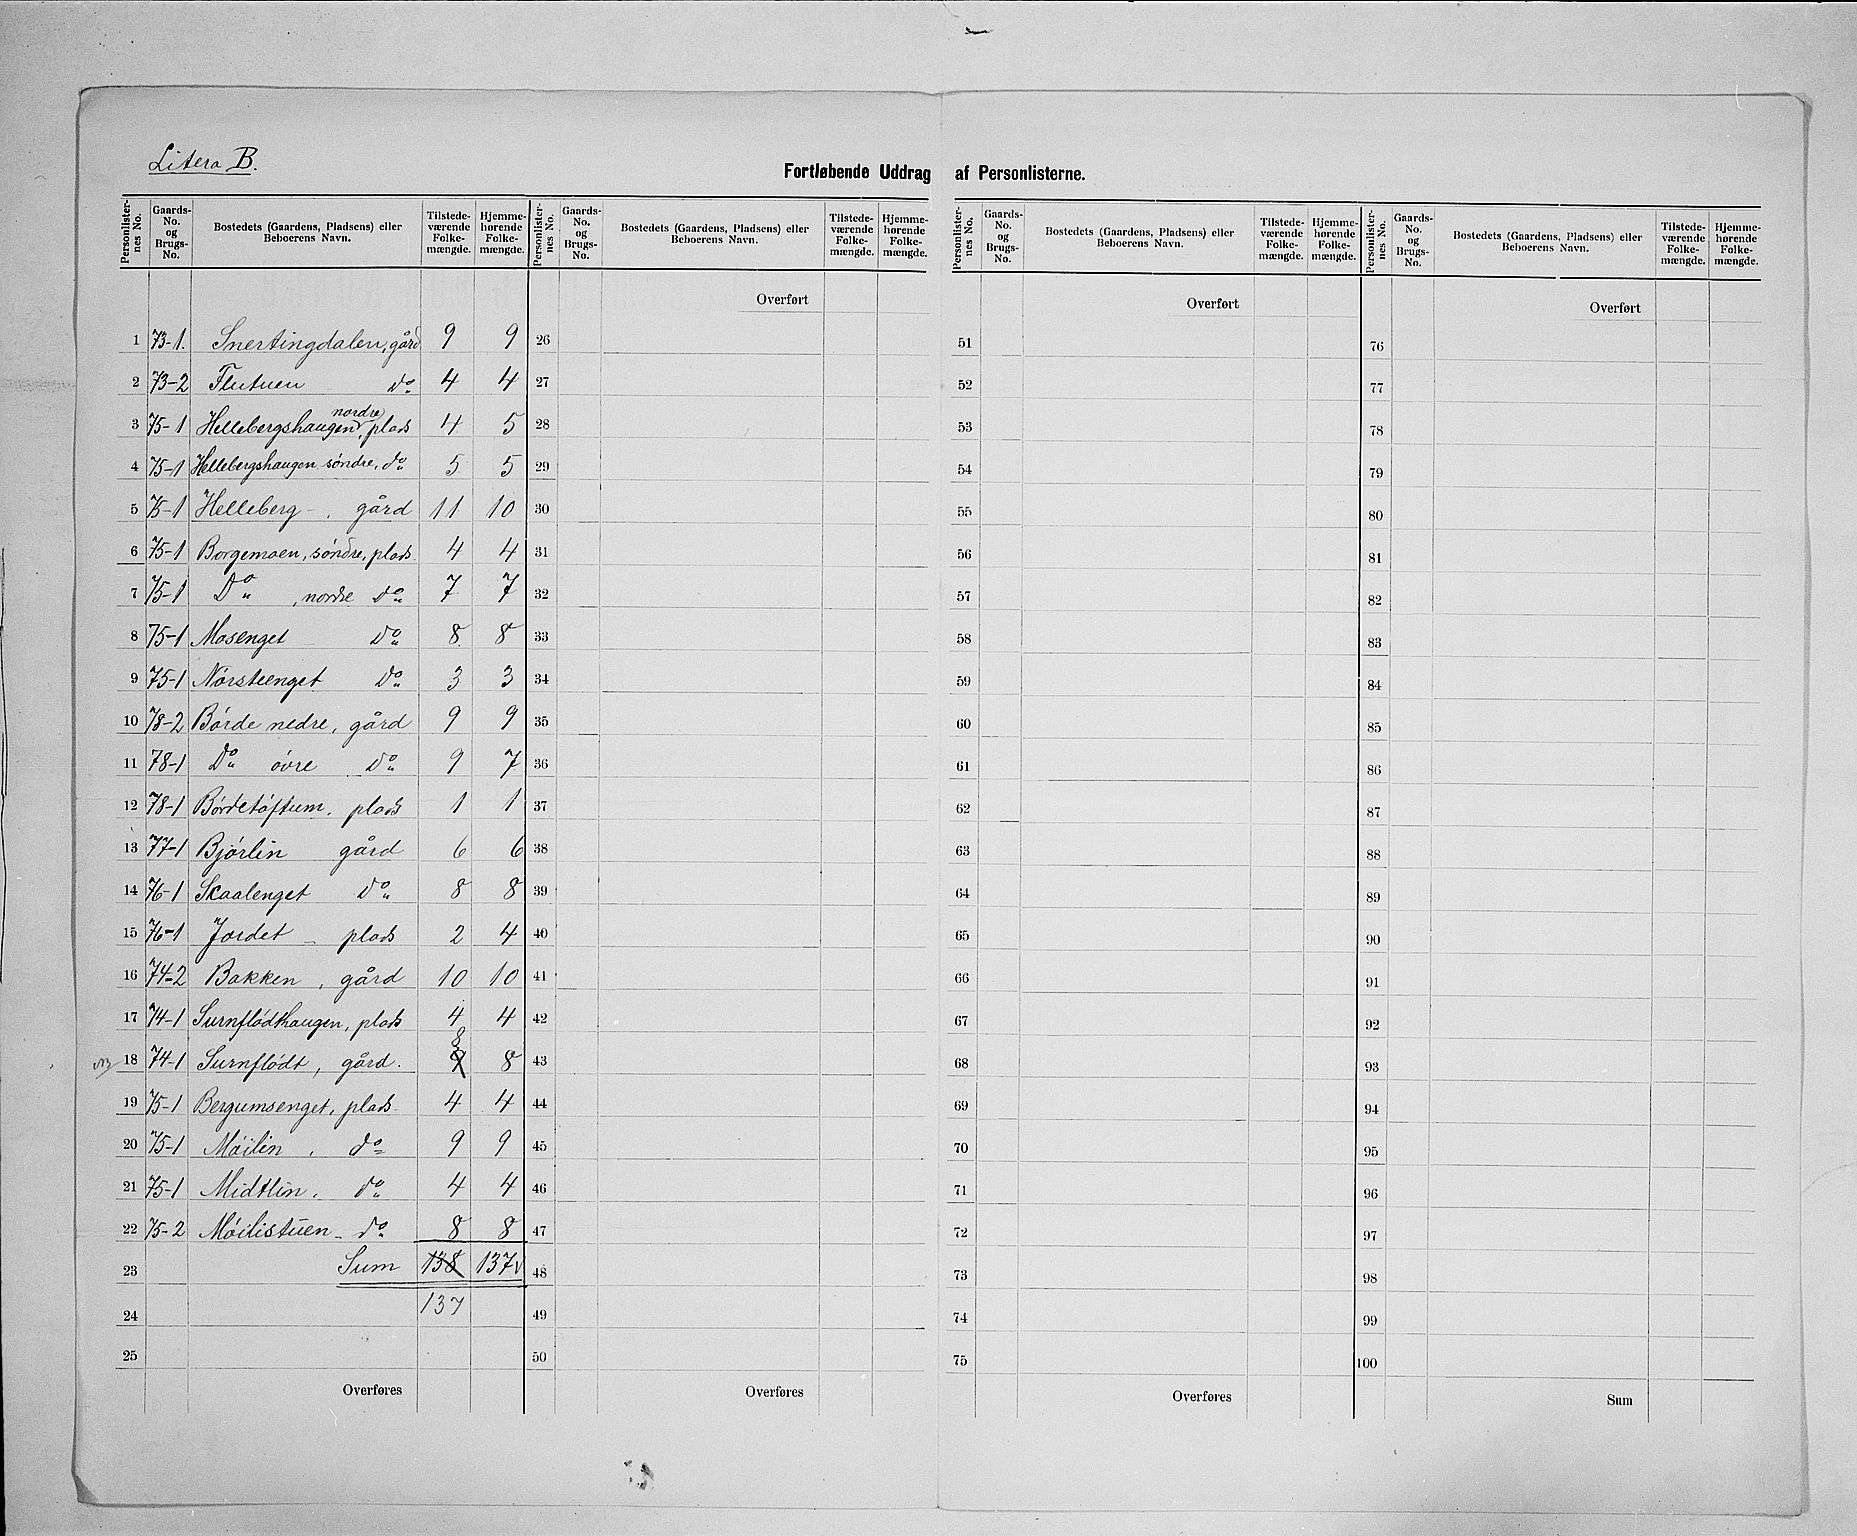 Litera B.
Fortløbende Uddrag af Personlisterne.
Personlister-nes No. | Gaards-No. og Brugs-No. | Bostedets (Gaardens, Pladsens) eller Beboerens Navn. | Tilstede-værende Folke-mængde. | Hjemme-hørende Folke-mængde. | Personlister-nes No. | Gaards-No. og Brugs-No. | Bostedets (Gaardens, Pladsens) eller Beboerens Navn. | Tilstede-værende Folke-mængde. | Hjemme-hørende Folke-mængde. | Personlister-nes No. | Gaards-No. og Brugs-No. | Bostedets (Gaardens, Pladsens) eller Beboerens Navn. | Tilstede-værende Folke-mængde. | Hjemme-hørende Folke-mængde. | Personlister-nes No. | Gaards-No. og Brugs-No. | Bostedets (Gaardens, Pladsens) eller Beboerens Navn. | Tilstede-værende Folke-mængde. | Hjemme-hørende Folke-mængde.
Overført Overført Overført
1 73-1. Snertingdalen, gård 9 9 26 51 76
2 73-2 Flutuen do 4 4 27 52 77
3 75-1 Hellebergshaugen nordre, plads 4 5 28 53 78
4 75-1 Hellebergshaugen søndre, do 5 5 29 54 79
5 75-1 Helleberg - . gård 11 10 30 55 80
6 75-1 Borgemoen, søndre, plads 4 4 31 56 81
7 75-1 Do , nordre do 7 7 32 57 82
8 75-1 Mosenget do 8 8 33 58 83
9 75-1 Nørsteenget do 3 3 34 59 84
10 78-2 Børde nedre, gård 9 9 35 60 85
11 78-1 Do øvre do 9 7 36 61 86
12 78-1 Børdetøftum. plads 1 1 37 62 87
13 77-1 Bjørlin gård 6 6 38 63 88
14 76-1 Skaalenget do 8 8 39 64 89
15 76-1 Jordet - plads 2 4 40 65 90
16 74-2 Bakken, gård 10 10 41 66 91
17 74-1 Surnflødthaugen, plads 4 4 42 67 92
18 74-1 Surnflødt, gård. 9 8 8 43 68 93
19 75-1 Bergumsenget, plads. 4 4 44 69 94
20 75-1 Møilin. do 9 9 45 70 95
21 75-1 Midtlin. do 4 4 46 71 96
22 75-2 Møilistuen - do 8 8 47 72 97
23 Sum 138 137 48 73 98
24 137 49 74 99
25 50 75 100
Overføres Overføres Overføres Sum